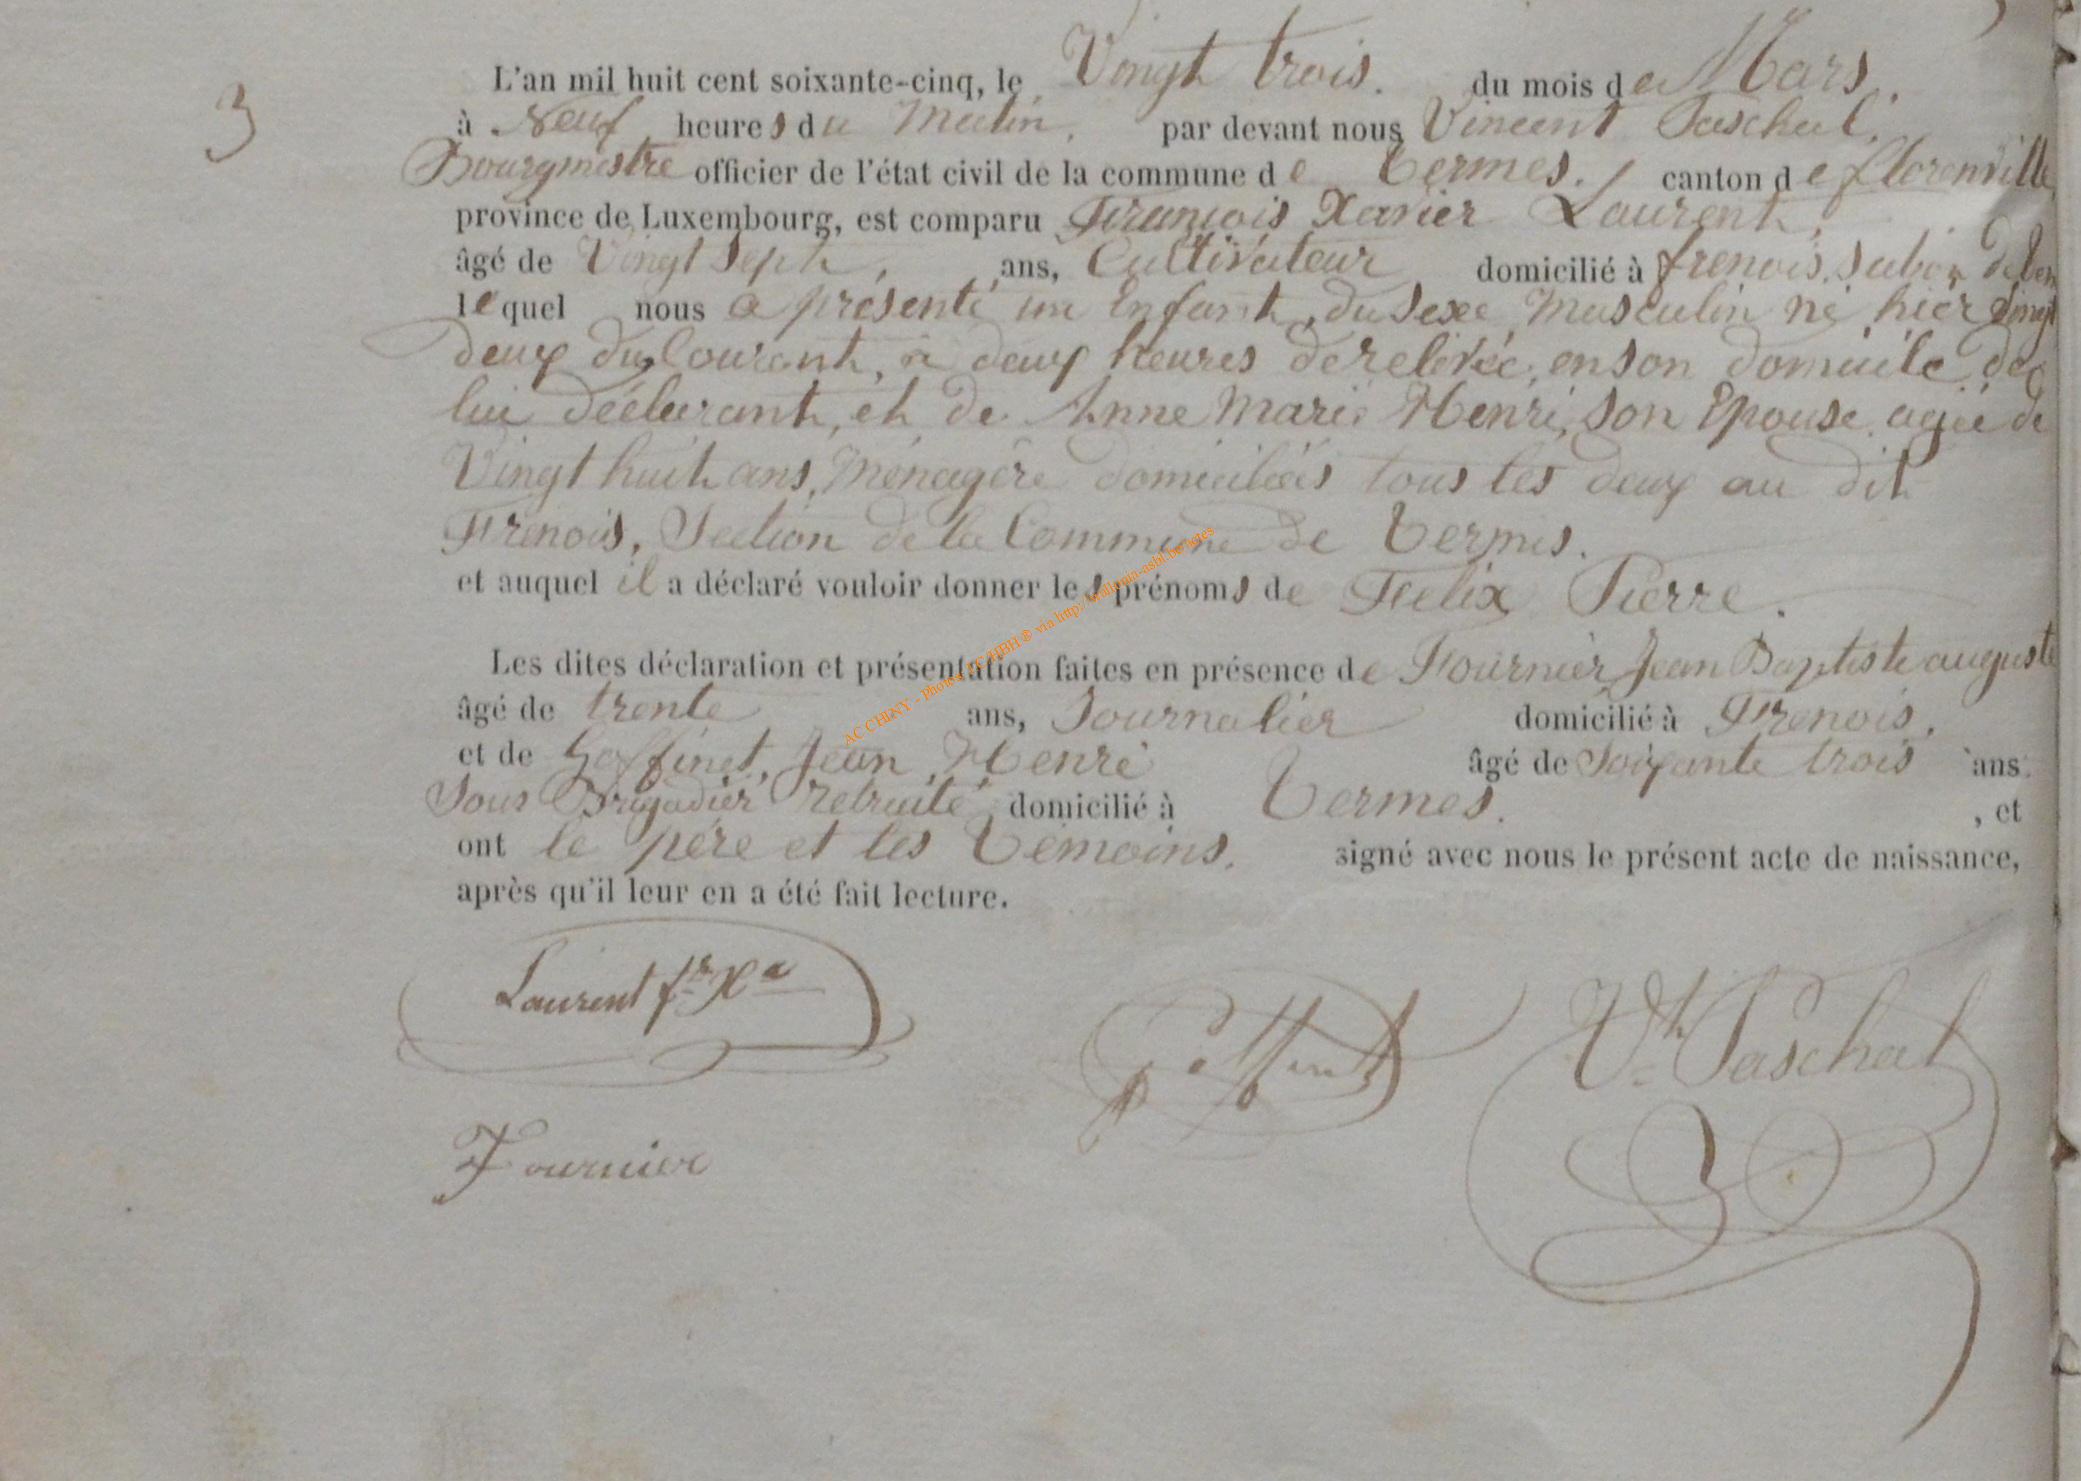 3
L'an mil huit cent soixante-cinq, le Vingt trois. du mois de Mars.
à Neuf heures du Matin, par devant nous Vincent Paschal,
Bourgmestre officier de l'état civil de la commune de Termes. canton de florenville
province de Luxembourg, est comparu François Xavier Laurent,
âgé de Vingt Sept, ans, Cultivateur domicilié à frenois,
lequel nous a présenté un Enfant, du Sexe Masculin né hier Vingt
deux du Courant, à deux heures de relevée, en son domicile de
lui déclarant, et de Anne Marie Henri, Son Epouse agée de
Vingt huit ans, Ménagère domiciliés tous les deux au dit
Frenois, Section de la Commune de Termes.
et auquel il a déclaré vouloir donner les prénoms de Felix Pierre.
Les dites déclaration et présentation faites en présence de Fournier Jean Baptiste auguste
âgé de trente ans, Journalier domicilié à Frenois,
et de Goffinet, Jean Henri âgé de Soixante trois ans
Sous Brigadier retraité, domicilié à Termes. , et
ont le père et les Témoins. signé avec nous le présent acte de naissance,
après qu'il leur en a été fait lecture.
Laurent fr Xe
Goffinet
Vt Paschal
Fournier
AC CHINY - Photos via http://wallonia-asbl.be/actes